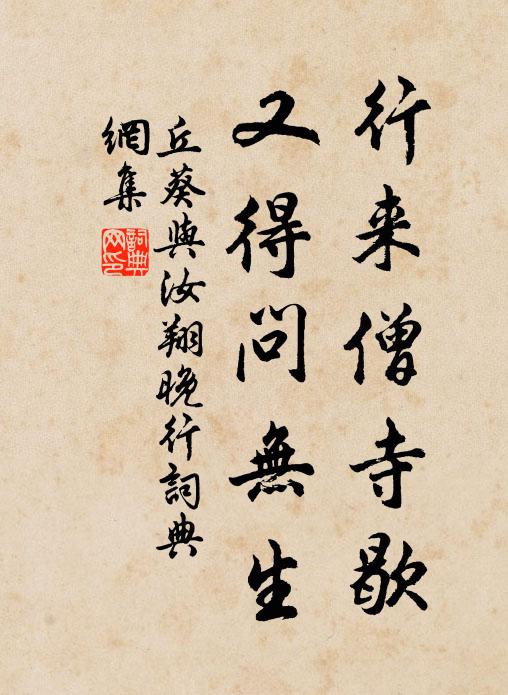 行来僧寺歇
又得問無生
丘葵與汝翔晚行詞典
網集
詞典
网印